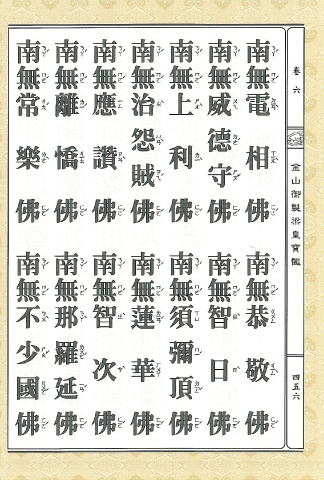 卷六
金山御製梁皇寶懺
四五六
南無電相佛 南無恭敬佛
南無威德守佛 南無智日佛
南無上利佛 南無須彌頂佛
南無治怨賊佛 南無蓮華佛
南無應讚佛 南無智次佛
南無離憍佛 南無那羅延佛
南無常樂佛 南無不少國佛